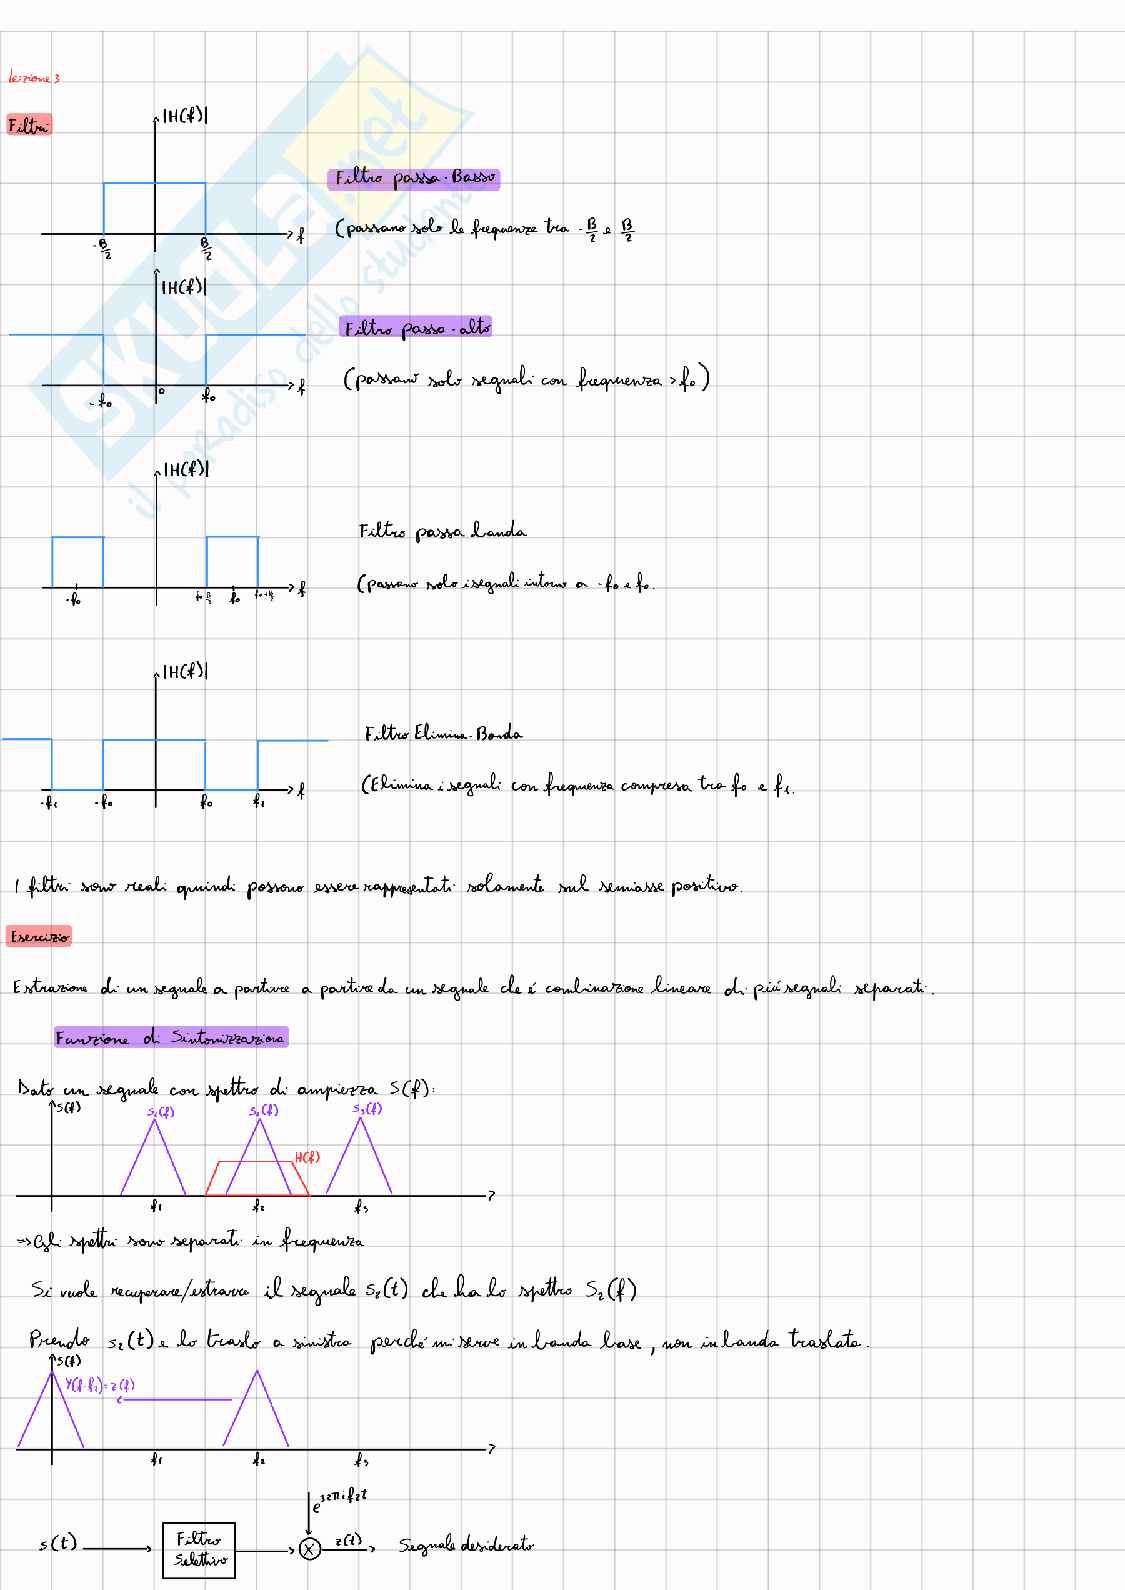 Lezione 3
Filtri
|H(f)|
Filtro passa-Basso
(passano solo le frequenze tra -B/2 e B/2
-B/2 B/2 f
|H(f)|
Filtro passa-alto
(passano solo segnali con frequenza > f₀)
-f₀ 0 f₀ f
|H(f)|
Filtro passa banda
(passano solo i segnali intorno a -f₀ e f₀.
-f₀ f₀ f
|H(f)|
Filtro Elimina-Banda
(Elimina i segnali con frequenza compresa tra f₀ e f₁.
-f₁ -f₀ f₀ f₁ f
I filtri sono reali quindi possono essere rappresentati solamente sul semiasse positivo.
Esercizio
Estrazione di un segnale a partire a partire da un segnale che é combinazione lineare di piú segnali separati.
Funzione di Sintonizzazione
Dato un segnale con spettro di ampiezza S(f):
S(f) S₁(f) S₂(f) S₃(f)
H(f)
f₁ f₂ f₃
=> Gli spettri sono separati in frequenza
Si vuole recuperare/estrarre il segnale s₂(t) che ha lo spettro S₂(f)
Prendo s₂(t) e lo traslo a sinistra perché mi serve in banda base, non in banda traslata.
S(f)
Y(f-f₂)=z(f)
f₁ f₂ f₃
s(t) Filtro Selettivo z(t) Segnale desiderato
SKUOLA.net
il paradiso dello studente